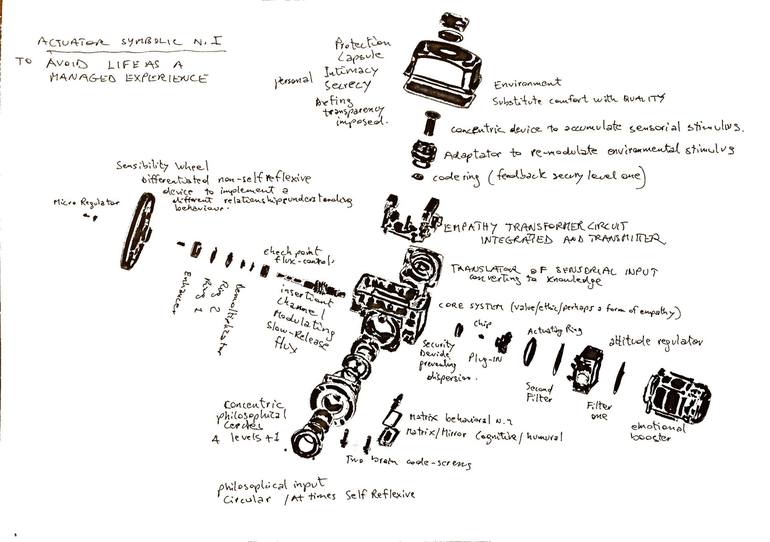 ACTUATOR SYMBOLIC N. I
TO AVOID LIFE AS A
MANAGED EXPERIENCE
Protection
Capsule
personal Intimacy
Secrecy
Defing
transparency
imposed.
Environment
Substitute comfort with QUALITY
concentric device to accumulate sensorial stimulus.
Adaptator to re-modulate environmental stimulus
code ring (feedback security level one)
EMPATHY TRANSFORMER CIRCUIT
INTEGRATED AND TRANSMITTER
TRANSLATOR OF SENSORIAL INPUT
converting to knowledge
CORE SYSTEM (value/ethic/perhaps a form of empathy)
Sensibility Wheel
Differentiated non-self reflexive
device to implement a
different relationship understanding
behaviour.
Micro Regulator
Enhancer
Ring 1
Ring 2
checkpoint
flux-control
insertion
channel
Modulating
Slow-Release
flux
Security
Devide
preventing
dispersion.
Chip
Plug-IN
Actuating Ring
Second
Filter
Filter
one
attitude regulator
emotional
booster
Concentric
philosophical
4 levels + 1
Matrix behavioral n.2
Matrix/Mirror Cognitive/humoral
Two brain code-screws
philosophical input
Circular /At times Self Reflexive